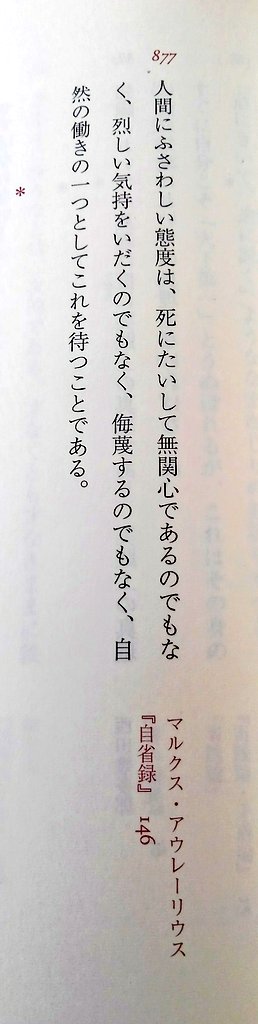 877
人間にふさわしい態度は、死にたいして無関心であるのでもな
く、烈しい気持をいだくのでもなく、侮蔑するのでもなく、自
然の働きの一つとしてこれを待つことである。
マルクス・アウレーリウス
『自省録』 146
*